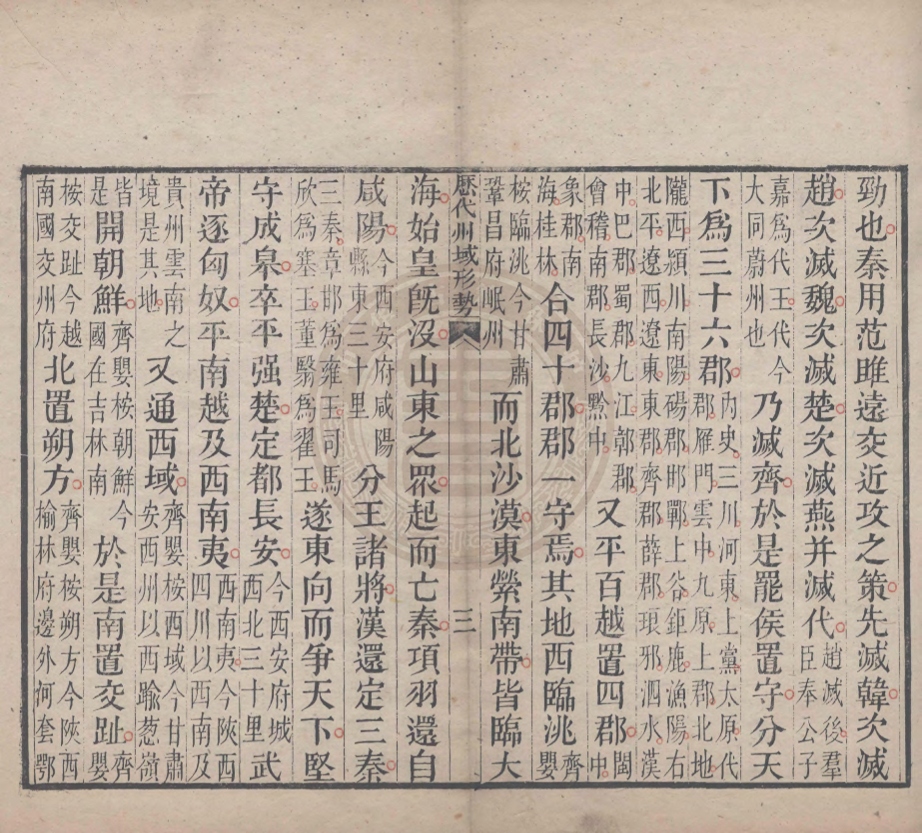 勁也秦用范雎遠交近攻之策先滅韓次滅
趙次滅魏次滅楚次滅燕并滅代趙滅後羣臣奉公子
嘉爲代王代今大同蔚州也乃滅齊於是罷侯置守分天
下爲三十六郡內史三川河東上黨太原代郡雁門雲中九原上郡北地
隴西潁川南陽碭郡邯鄲上谷鉅鹿漁陽右北平遼西遼東郡齊郡薛郡琅邪泗水漢
中巴郡蜀郡九江鄣郡會稽南郡長沙黔中又平百越置四郡閩中
象郡南海桂林合四十郡郡一守焉其地西臨洮齊嬰
桉臨洮今甘肅鞏昌府岷州而北沙漠東縈南帶皆臨大
歷代州域形勢 三
海始皇旣沒山東之眾起而亡秦項羽還自
咸陽今西安府咸陽縣東三十里分王諸將漢還定三秦
三秦章邯爲雍王司馬欣爲塞王董翳爲翟王遂東向而爭天下堅
守成皋卒平强楚定都長安今西安府城西北三十里武
帝逐匈奴平南越及西南夷西南夷今陝西四川以西南及
貴州雲南之境是其地又通西域齊嬰桉西域今甘肅安西州以西踰葱嶺
皆是開朝鮮齊嬰桉朝鮮今國在吉林南於是南置交趾齊嬰
桉交趾今越南國交州府北置朔方齊嬰桉朔方今陝西榆林府邊外河套鄂